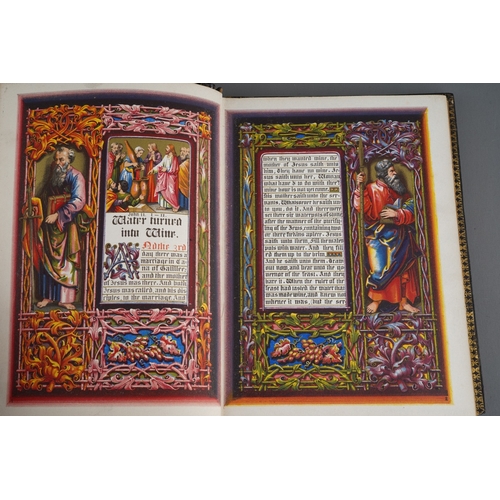 JOHN II. 1-11.
Water turned
into Wine.
And the 3rd
day there was a
marriage in Ca
na of Galilee; and
the mother
of Jesus was there. And both
Jesus was called and his disc
iples, to the marriage. And
when they wanted wine, the
mother of Jesus saith unto
him, They have no wine.
Jesus saith unto her, Woman
what have I to do with thee?
mine hour is not yet come.
His mother saith unto the ser
vants, Whatsoever he saith un
to you, do it. And there were
set there six waterpots of stone
after the manner of the purify
ing of the Jews, containing two
or three firkins apiece. Jesus
saith unto them, Fill the water
pots with water. And they fill
ed them up to the brim.
And he saith unto them, Draw
out now, and bear unto the go
vernor of the feast. And they
bare it. When the ruler of the
feast had tasted the water that
was made wine, and knew not
whence it was, but the ser